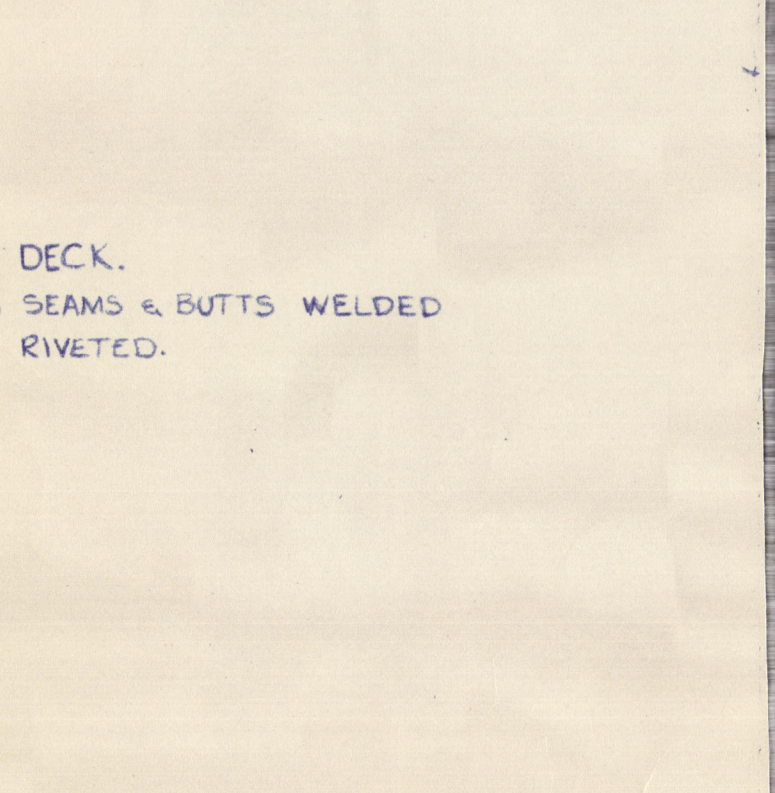 DECK.
SEAMS & BUTTS WELDED
RIVETED.